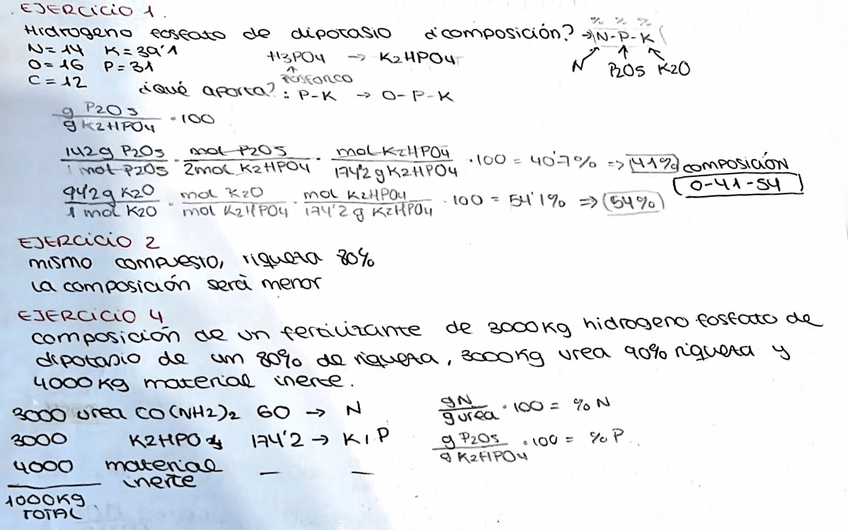 EJERCICIO 1.
Hidrogeno fosfato de dipotasio ¿composición? → N-P-K
% % %
N=14 K=39'1
O=16 P=31
C=12
H3PO4 → K2HPO4
FOSFORICO
N P2O5 K2O
¿Qué aporta? : P-K → O-P-K
g P2O5 / g K2HPO4 · 100
142g P2O5 / 1 mol P2O5 · mol P2O5 / 2mol K2HPO4 · mol K2HPO4 / 174'2 g K2HPO4 · 100 = 40'7% => 41% composición
94'2g K2O / 1 mol K2O · mol K2O / mol K2HPO4 · mol K2HPO4 / 174'2 g K2HPO4 · 100 = 54'1% => 54%
0-41-54
EJERCICIO 2
mismo compuesto, riqueza 80%
la composición será menor
EJERCICIO 4
composición de un fertilizante de 3000Kg hidrogeno fosfato de
dipotasio de un 80% de riqueza, 3000Kg urea 90% riqueza y
4000Kg material inerte.
3000 urea CO(NH2)2 60 → N
3000 K2HPO4 174'2 → K, P
4000 material inerte — —
1000Kg TOTAL
gN / g urea · 100 = % N
g P2O5 / g K2HPO4 · 100 = % P